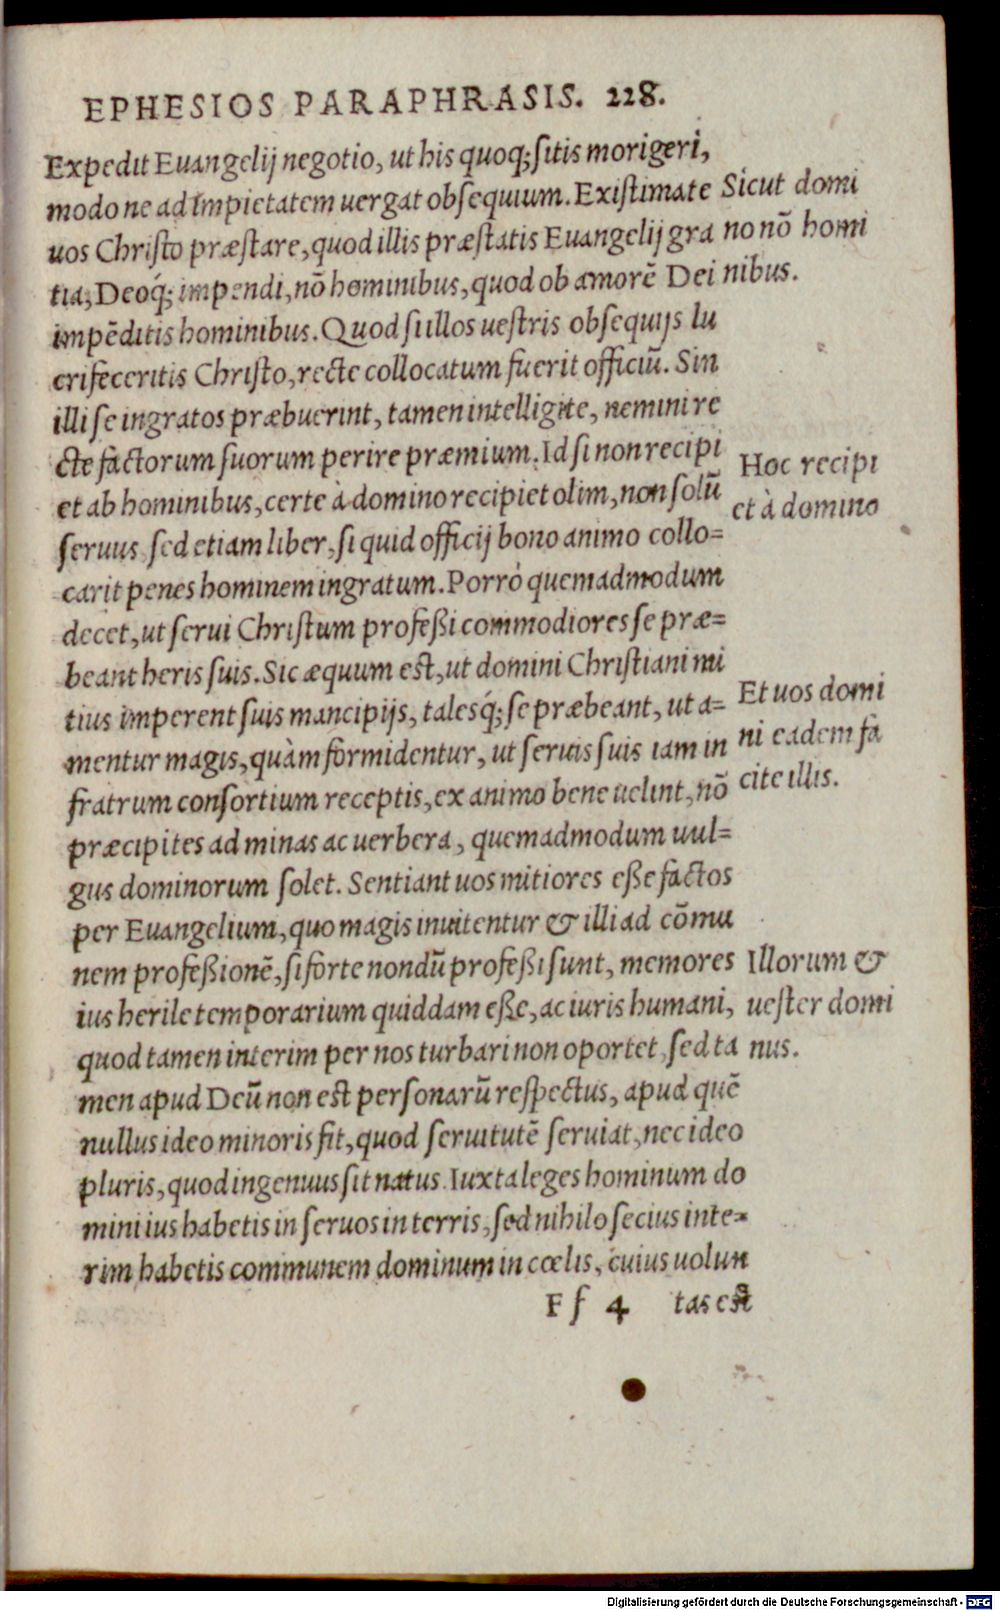 EPHESIOS PARAPHRASIS. 228.
Expedit Euangelij negotio, ut his quoq; sitis morigeri,
modo ne ad impietatem uergat obsequium. Existimate
uos Christo præstare, quod illis præstatis Euangelij gra
tia; Deoq́; impendi, nō hominibus, quod ob amorē Dei
impēditis hominibus. Quod si illos uestris obsequijs lu
crifeceritis Christo, recte collocatum fuerit officiū. Sin
illi se ingratos præbuerint, tamen intelligite, nemini re
cte factorum suorum perire præmium. Id si non recipi
et ab hominibus, certe à domino recipiet olim, non solū
seruus sed etiam liber, si quid officij bono animo collo-
carit penes hominem ingratum. Porrò quemadmodum
decet, ut serui Christum professi commodiores se præ-
beant heris suis. Sic æquum est, ut domini Christiani mi
tius imperent suis mancipijs, talesq́; se præbeant, ut a-
mentur magis, quàm formidentur, ut seruis suis iam in
fratrum consortium receptis, ex animo bene uelint, nō
præcipites ad minas ac uerbera, quemadmodum uul-
gus dominorum solet. Sentiant uos mitiores esse factos
per Euangelium, quo magis inuitentur & illi ad cōmu
nem professionē, si forte nondū professi sunt, memores
ius herile temporarium quiddam esse, ac iuris humani,
quod tamen interim per nos turbari non oportet, sed ta
men apud Deū non est personarū respectus, apud quē
nullus ideo minoris fit, quod seruitutē seruiat, nec ideo
pluris, quod ingenuus sit natus. Iuxta leges hominum do
mini ius habetis in seruos in terris, sed nihilo secius inte-
rim habetis communem dominum in cœlis, cuius uolun
Ff 4 tas est
Sicut domi
no nō homi
nibus.
Hoc recipi
et à domino
Et uos domi
ni eadem fa
cite illis.
Illorum &
uester domi
nus.
Digitalisierung gefördert durch die Deutsche Forschungsgemeinschaft - DFG